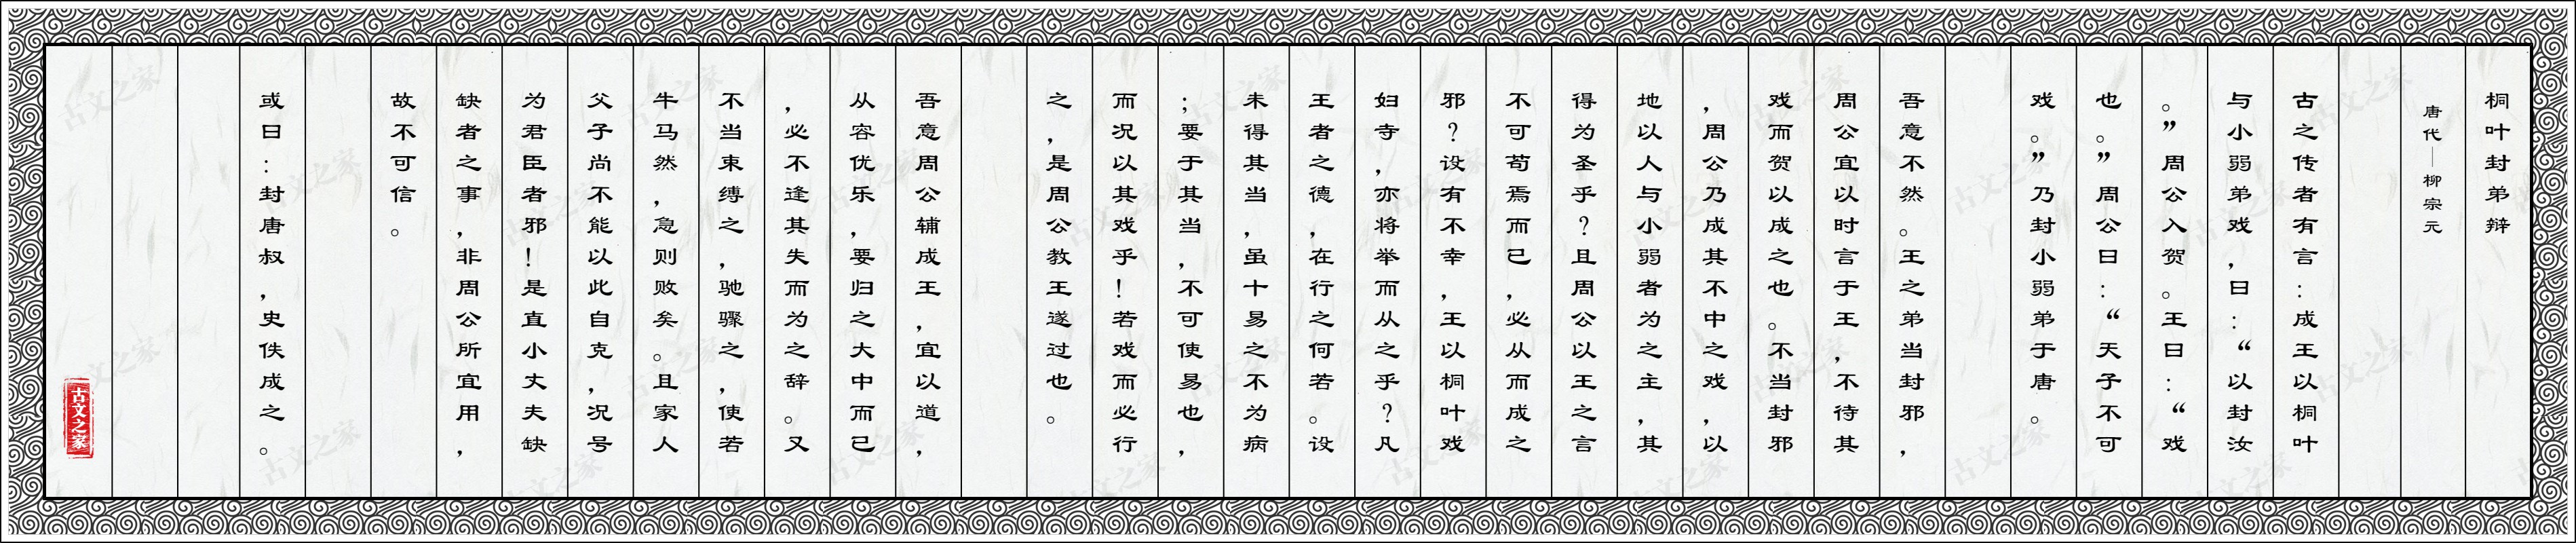 桐叶封弟辩
唐代—柳宗元
古之传者有言：成王以桐叶
与小弱弟戏，曰：“以封汝
。”周公入贺。王曰：“戏
也。”周公曰：“天子不可
戏。”乃封小弱弟于唐。
吾意不然。王之弟当封邪，
周公宜以时言于王，不待其
戏而贺以成之也。不当封邪
，周公乃成其不中之戏，以
地以人与小弱者为之主，其
得为圣乎？且周公以王之言
不可苟焉而已，必从而成之
邪？设有不幸，王以桐叶戏
妇寺，亦将举而从之乎？凡
王者之德，在行之何若。设
未得其当，虽十易之不为病
；要于其当，不可使易也，
而况以其戏乎！若戏而必行
之，是周公教王遂过也。
吾意周公辅成王，宜以道，
从容优乐，要归之大中而已
，必不逢其失而为之辞。又
不当束缚之，驰骤之，使若
牛马然，急则败矣。且家人
父子尚不能以此自克，况号
为君臣者邪！是直小丈夫缺
缺者之事，非周公所宜用，
故不可信。
或曰：封唐叔，史佚成之。
古文之家